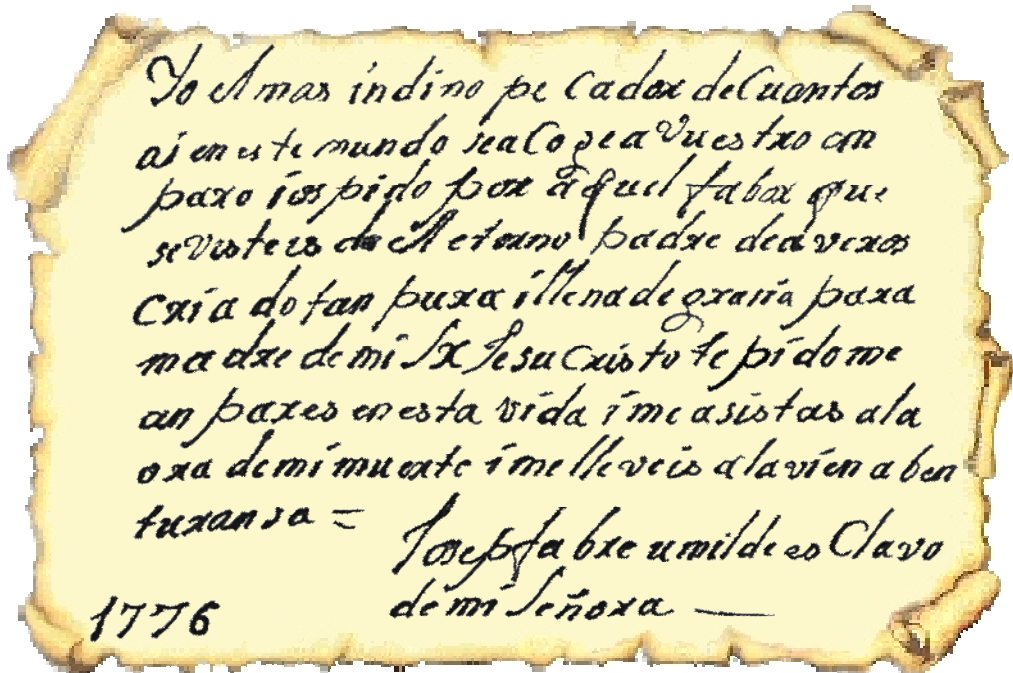 Yo el mas indino pe Cador de Cuantos
ai en este mundo sea Co gea Vuestro an
paro i os pido por aquel fabor que
se visteis de el eterno padre de averos
Criado tan pura i llena de grasia para
madre de mi Sr Jesu Cristo te pido me
an pares en esta vida i me asistas a la
ora de mi muerte i me lleveis a la vien a ben
turansa =
Josep fabre umilde es Clavo
de mi Señora —
1776